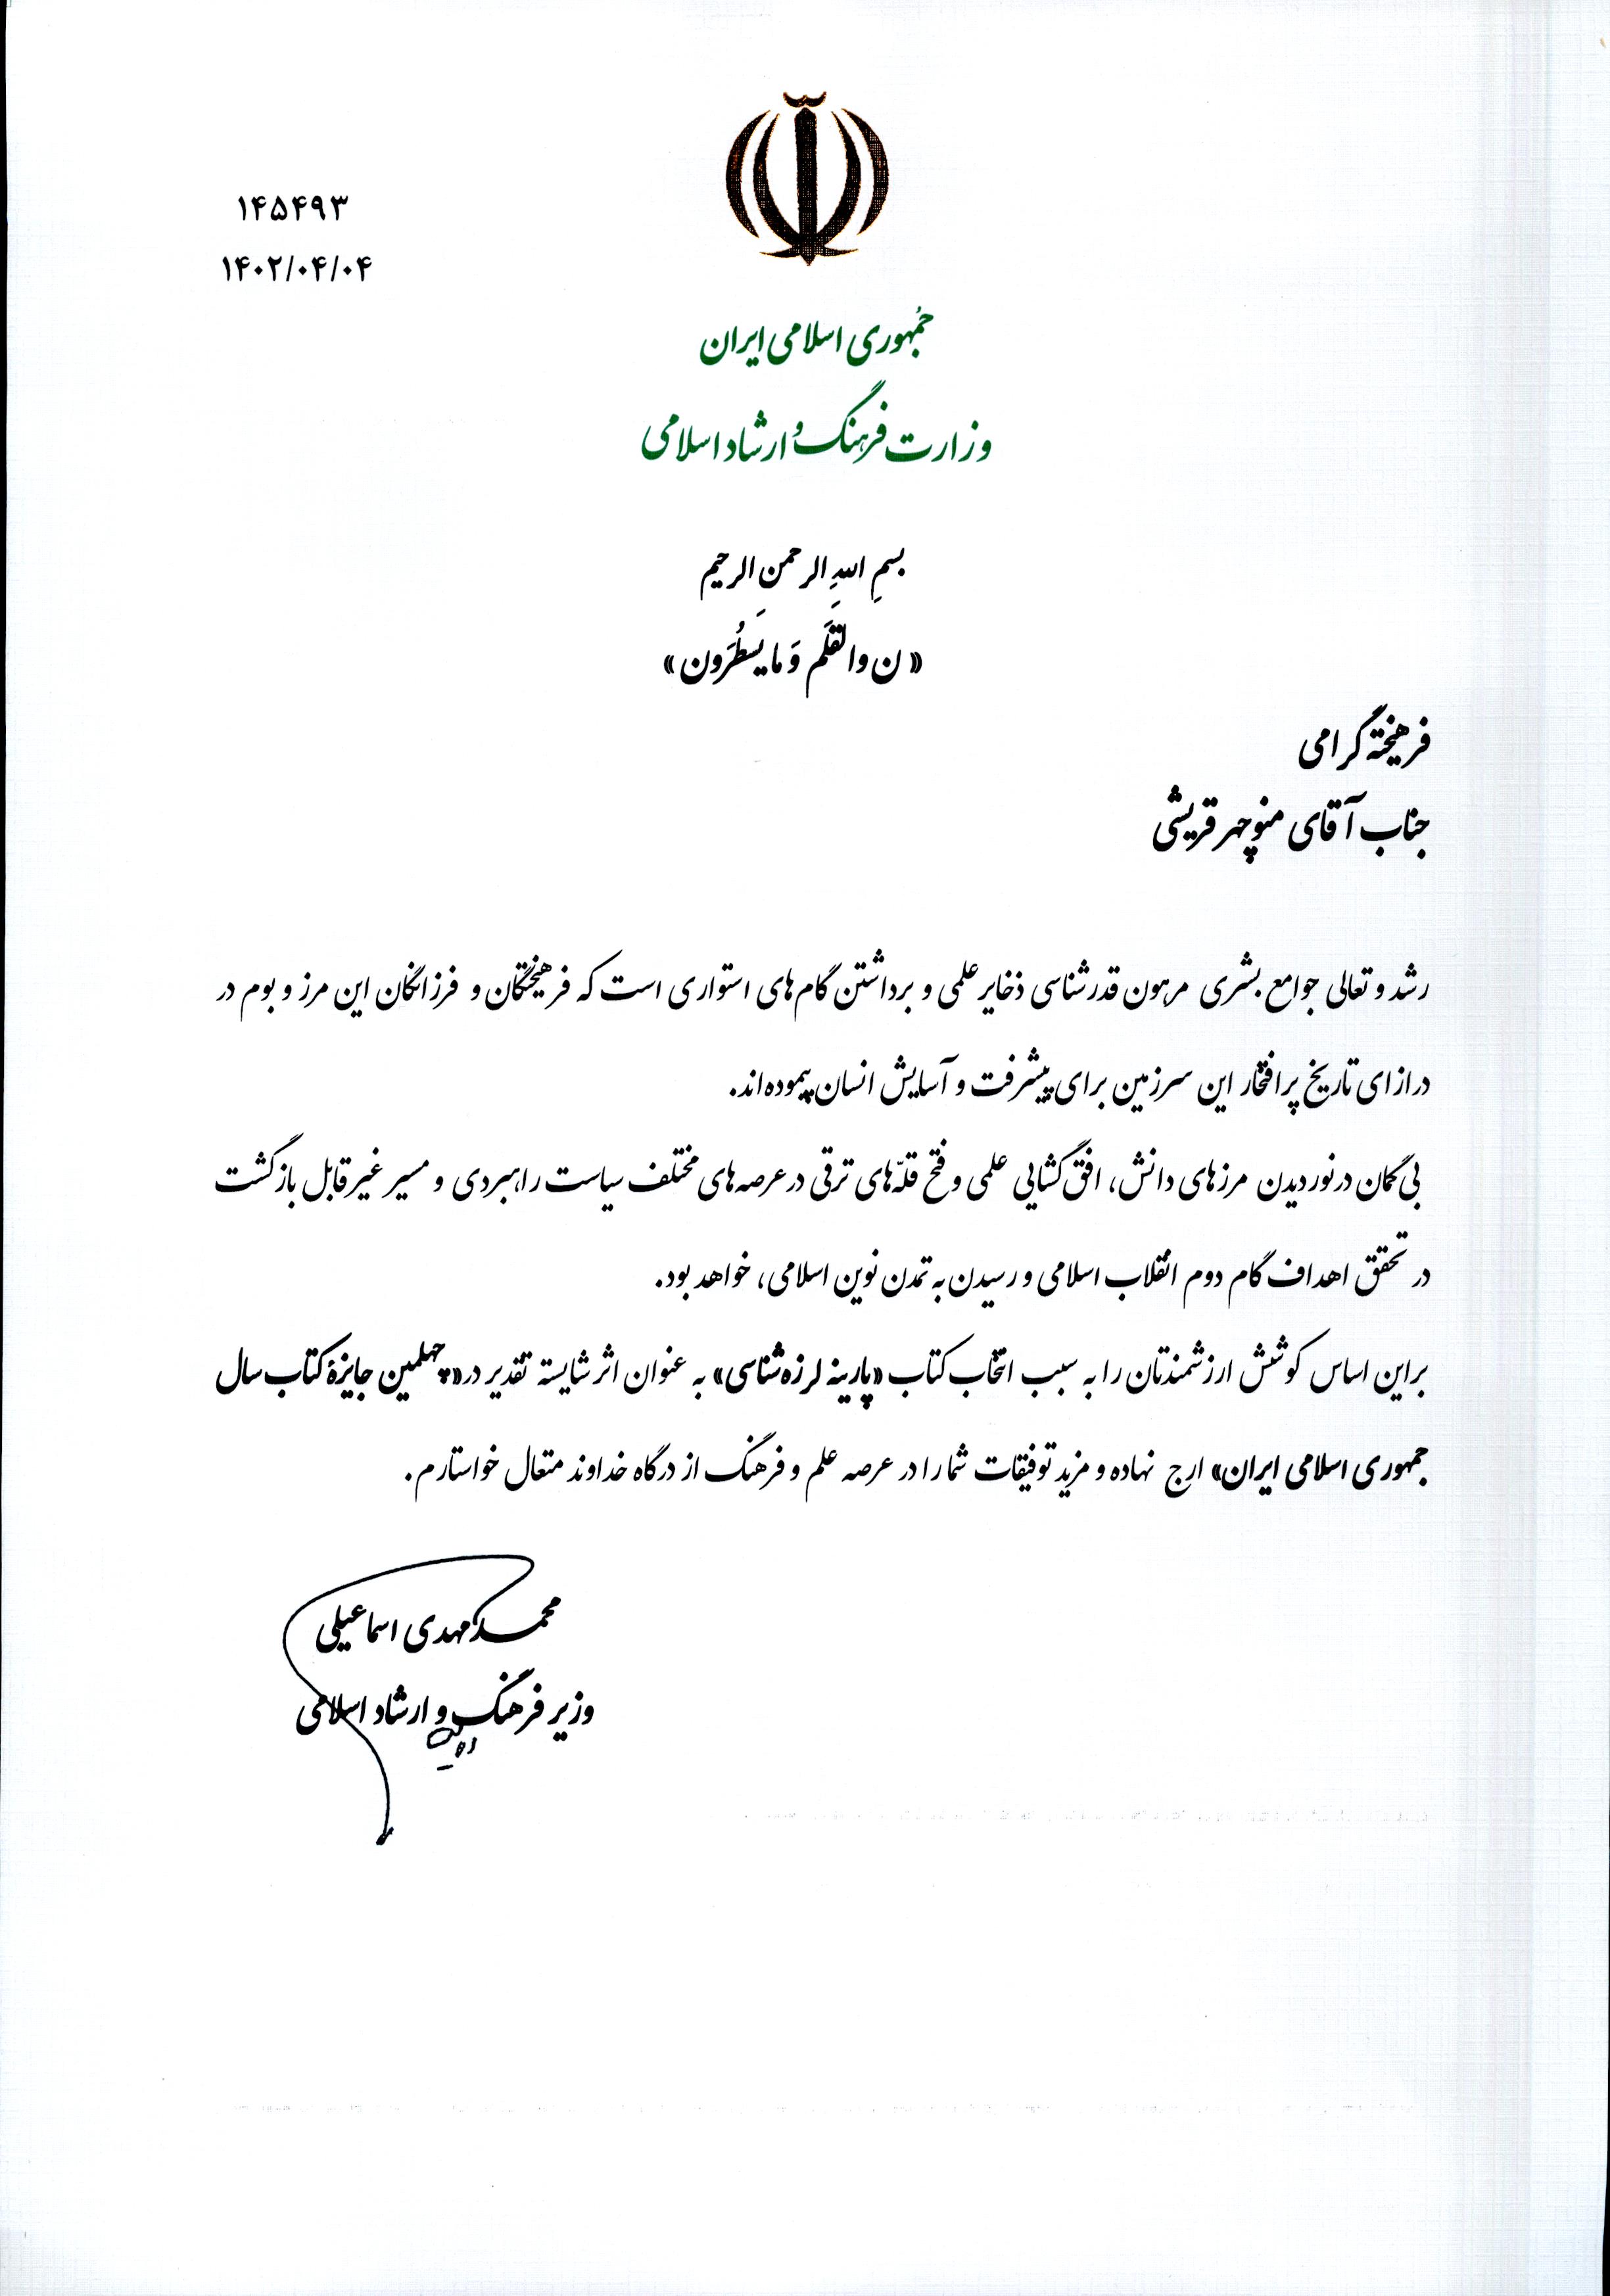 ۱۴۵۴۹۳
۱۴۰۲/۰۴/۰۴
جمهوری اسلامی ایران
وزارت فرهنگ و ارشاد اسلامی
بسمِ اللهِ الرحمنِ الرحیمِ
«ن والقَلَمِ وَ ما یَسطُرَون»
فرهیختهٔ گرامی
جناب آقای منوچهر قریشی
رشد و تعالی جوامع بشری مرهون قدرشناسی ذخایر علمی و برداشتن گام‌های استواری است که فرهیختگان و فرزانگان این مرز و بوم در
درازای تاریخ پرافتخار این سرزمین برای پیشرفت و آسایش انسان پیموده‌اند.
بی‌گمان درنوردیدن مرزهای دانش، افق‌گشایی علمی و فتح قلّه‌های ترقی در عرصه‌های مختلف سیاست راهبردی و مسیر غیرقابل بازگشت
در تحقق اهداف گام دوم انقلاب اسلامی و رسیدن به تمدن نوین اسلامی، خواهد بود.
براین اساس کوشش ارزشمندتان را به سبب انتخاب کتاب «پارینه لرزه‌شناسی» به عنوان اثر شایسته تقدیر در «چهلمین جایزهٔ کتاب سال
جمهوری اسلامی ایران» ارج نهاده و مزید توفیقات شما را در عرصه علم و فرهنگ از درگاه خداوند متعال خواستارم.
محمدمهدی اسماعیلی
وزیر فرهنگ و ارشاد اسلامی